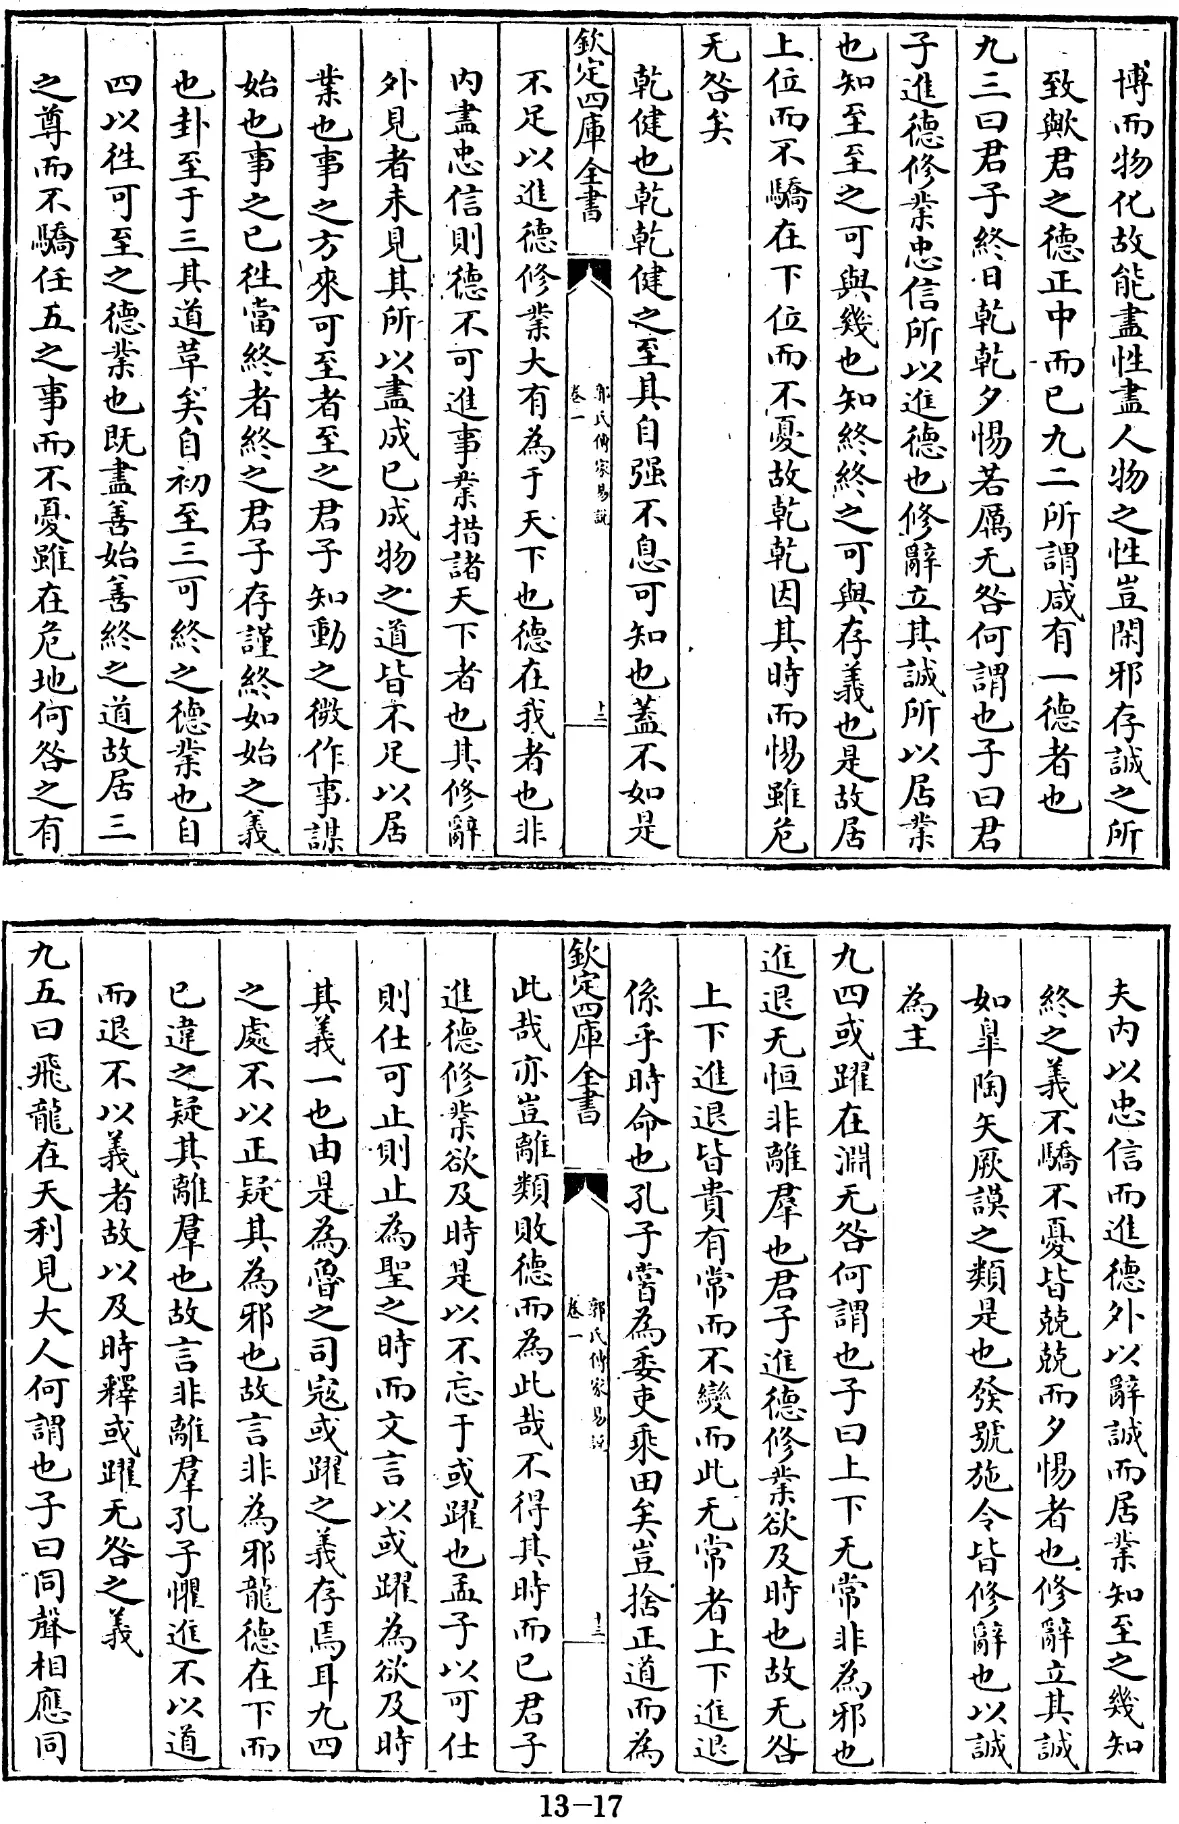 博而物化故能盡性盡人物之性豈閑邪存誠之所
致歟君之德正中而已九二所謂咸有一德者也
九三曰君子終日乾乾夕惕若厲无咎何謂也子曰君
子進德修業忠信所以進德也修辭立其誠所以居業
也知至至之可與幾也知終終之可與存義也是故居
上位而不驕在下位而不憂故乾乾因其時而惕雖危
无咎矣
乾健也乾乾健之至其自强不息可知也蓋不如是
欽定四庫全書
郭氏傳家易說
卷一
十二
不足以進德修業大有為于天下也德在我者也非
内盡忠信則德不可進事業措諸天下者也其修辭
外見者未見其所以盡成已成物之道皆不足以居
業也事之方來可至者至之君子知動之微作事謀
始也事之已徃當終者終之君子存謹終如始之義
也卦至于三其道革矣自初至三可終之德業也自
四以徃可至之德業也既盡善始善終之道故居三
之尊而不驕任五之事而不憂雖在危地何咎之有
夫内以忠信而進德外以辭誠而居業知至之幾知
終之義不驕不憂皆兢兢而夕惕者也修辭立其誠
如臯陶矢厥謨之類是也發號施令皆修辭也以誠
為主
九四或躍在淵无咎何謂也子曰上下无常非為邪也
進退无恒非離羣也君子進德修業欲及時也故无咎
上下進退皆貴有常而不變而此无常者上下進退
係乎時命也孔子嘗為委吏乘田矣豈捨正道而為
欽定四庫全書
郭氏傳家易說
卷一
十三
此哉亦豈離類敗德而為此哉不得其時而已君子
進德修業欲及時是以不忘于或躍也孟子以可仕
則仕可止則止為聖之時而文言以或躍為欲及時
其義一也由是為魯之司寇或躍之義存焉耳九四
之處不以正疑其為邪也故言非為邪龍德在下而
已違之疑其離羣也故言非離羣孔子懼進不以道
而退不以義者故以及時釋或躍无咎之義
九五曰飛龍在天利見大人何謂也子曰同聲相應同
13-17